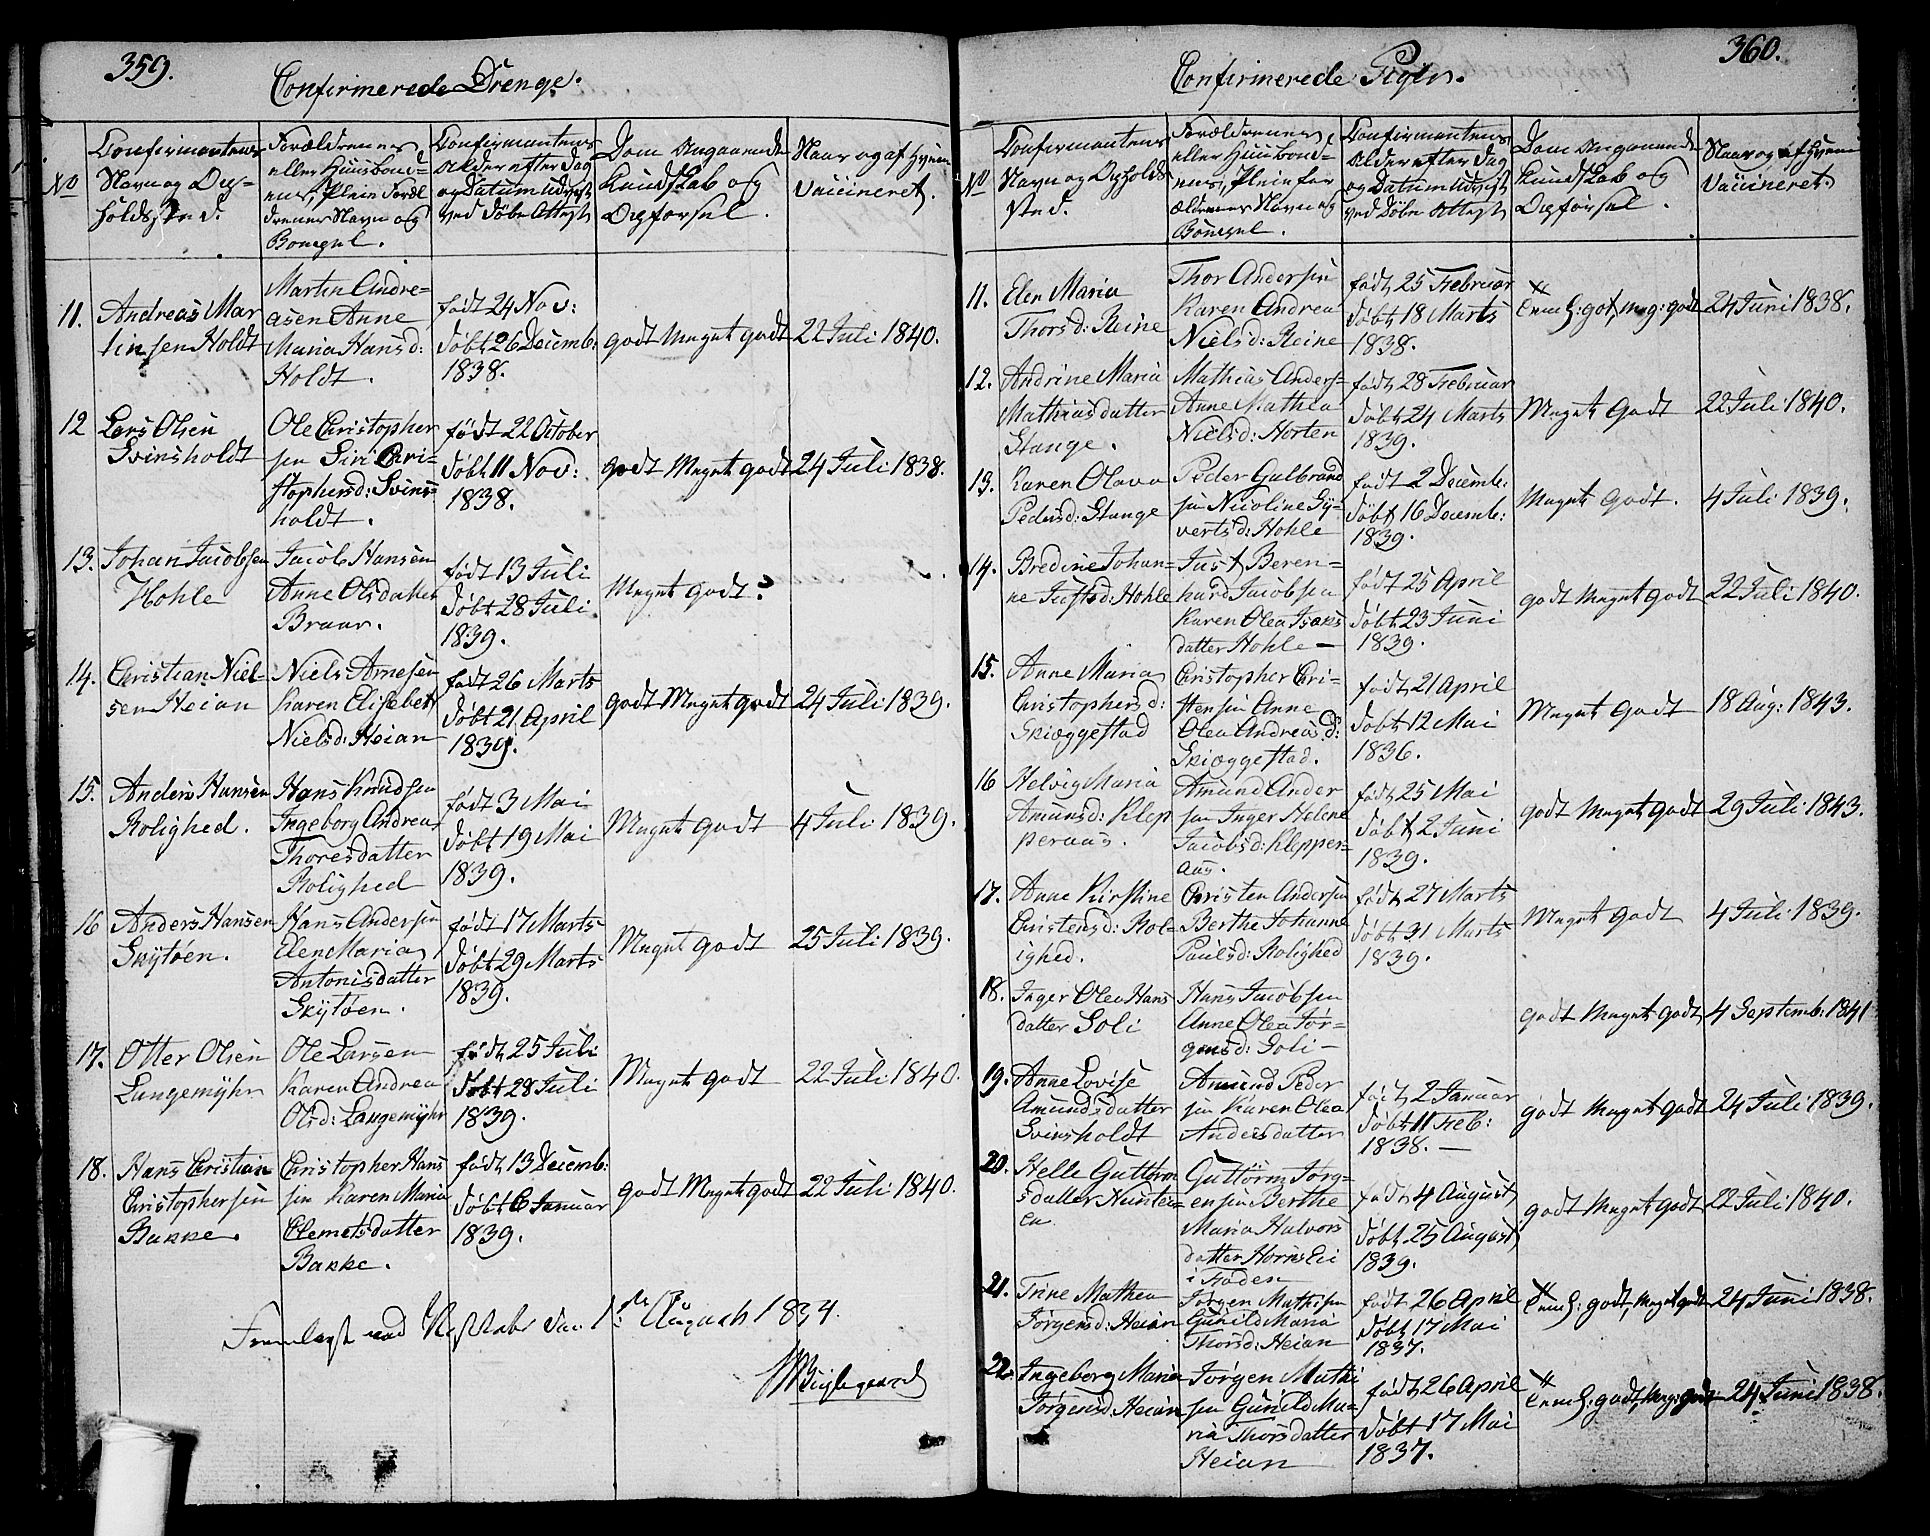 359.
Confirmerede Drenge.
No
Confirmantens
Navn og Op-
holdssted.
Forældrenes
eller Huusbond-
ens, Pleie Foræl
drenes Navn og
Boepæl.
Confirmantens
Alder efter Dag
og Datum Udvist
ved Døbe Attest
Dom Angaaende
Kundskab og
Opførsel.
Naar og af hvem
Vaccineret.
11.
Andreas Mar
tinsen Holdt
Martin Andre-
asen Anne
Maria Hansd:
Holdt.
født 24 Nov:
døbt 26 Decemb:
1838.
godt Meget godt
22 Juli 1840.
12
Lars Olsen
Svinsholdt
Ole Christopher
sen Siri Chri-
stophersd: Svins-
holdt.
født 22 October
døbt 11 Nov:
1838.
godt Meget godt
24 Juli 1838.
13.
Johan Jacobsen
Hohle
Jacob Hansen
Anne Olsdatter
Braar.
født 13 Juli
døbt 28 Juli
1839.
Meget godt?
14.
Christian Niel-
sen Heian
Niels Arnesen
Karen Elisebet
Nielsd: Heian
født 26 Marts
døbt 21 April
1839.
godt Meget godt
24 Juli 1839.
15.
Anders Hansen
Rolighed.
Hans Knudsen
Ingeborg Andrea
Thoresdatter
Rolighed
født 3 Mai
døbt 19 Mai
1839.
Meget godt
4 Juli 1839.
16
Anders Hansen
Skÿtøen.
Hans Andersen
Elen Maria
Antonisdatter
Skÿtøen.
født 17 Marts
døbt 29 Marts
1839.
Meget godt
25 Juli 1839.
17.
Otter Olsen
Langemÿhr
Ole Larsen
Karen Andrea
Olsd: Langemÿhr
født 25 Juli
døbt 28 Juli
1839.
Meget godt
22 Juli 1840.
18.
Hans Christian
Christophersen
Bakke.
Christopher Hans
sen Karen Maria
Clemetsdatter
Bakke.
født 13 Decemb:
døbt 6 Januar
1839.
godt Meget godt
22 Juli 1840.
Fremlagt ved den 1ste August 1854.
360.
Confirmerede Piger.
No
Confirmantens
Navn og Opholds
sted.
Forældrenes
eller Huusbond-
ens, Pleie for
ældrenes Navn og
Boepæl.
Confirmantens
Alder efter Dag
og Datum Udvist
ved Døbe Attest
Dom Angaaende
Kundskab og
Opførsel.
Naar og af hvem
Vaccineret.
11.
Elen Maria
Thorsd: Reine
Thor Andersen
Karen Andrea
Nielsd: Reine
født 25 Februar
døbt 18 Marts
1838.
: got, meg: godt
24 Juni 1838.
12.
Andrine Maria
Mathiasdatter
Stange.
Mathias Anders-
Anne Mathea
Nielsd: Horten
født 28 Februar
døbt 24 Marts
1839.
Meget godt
22 Juli 1840.
13.
Karen Olava
Pedersd: Stange
Peder Gulbrand
sen Nicoline Sÿ-
vertsd: Hohle
født 2 Decemb:
døbt 16 Decemb:
1839.
Meget godt.
4 Juli 1839.
14.
Bredine Johan-
ne Justsd: Hohle
Just Beren-
hard Jacobsen
Karen Olea Isaks
datter Hohle
født 25 April
døbt 23 Juni
1839.
godt Meget godt
22 Juli 1840.
15.
Anne Maria
Christophersd:
Skiæggestad
Christopher Chri-
stensen Anne
Olea Andreasd:
Skiæggestad.
født 21 April
døbt 12 Mai
1836.
Meget godt
18 Aug: 1843.
16
Helvig Maria
Amunds: Klep
peraas.
Amund Ander
sen Inger Helene
Jacobsd: Klepper-
aas.
født 25 Mai
døbt 2 Juni
1839.
godt Meget godt
29 Juli 1843.
17.
Anne Kirstine
Christensd: Rol-
ighed.
Christen Andersen
Berthe Johanne
Paulsd: Rolighed
født 27 Marts
døbt 31 Marts
1839.
Meget godt
4 Juli 1839.
18.
Inger Olea Hans
datter Soli
Hans Jacobsen
Anne Olea Jør-
gensd: Soli
godt Meget godt
4 Septemb: 1841
19.
Anne Lovise
Amundsdatter
Svinsholdt
Amund Peder
sen Karen Olea
Andersdatter
født 2 Januar
døbt 11 Feb:
1838.
godt Meget godt
24 Juli 1839.
20.
Helle Guttorm
sdatter Nunstei-
en
Guttorm Jørg-
ensen Berthe
Maria Halvors
datter Horns Ei
i Faden
født 4 August
døbt 25 August
1839.
godt Meget godt
22 Juli 1840.
21.
Trine Mathea
Jørgensd: Heian
Jørgen Mathisen
Gunild Maria
Thorsd: Heian
født 26 April
døbt 17 Mai
1837.
: godt, Meget godt
24 Juni 1838.
22.
Ingeborg Maria
Jørgensd Heian
Jørgen Mathi
sen Gunild Ma-
ria Thorsdatter
Heian
født 26 April
døbt 17 Mai
1837.
: godt, Meg: godt
24 Juni 1838.